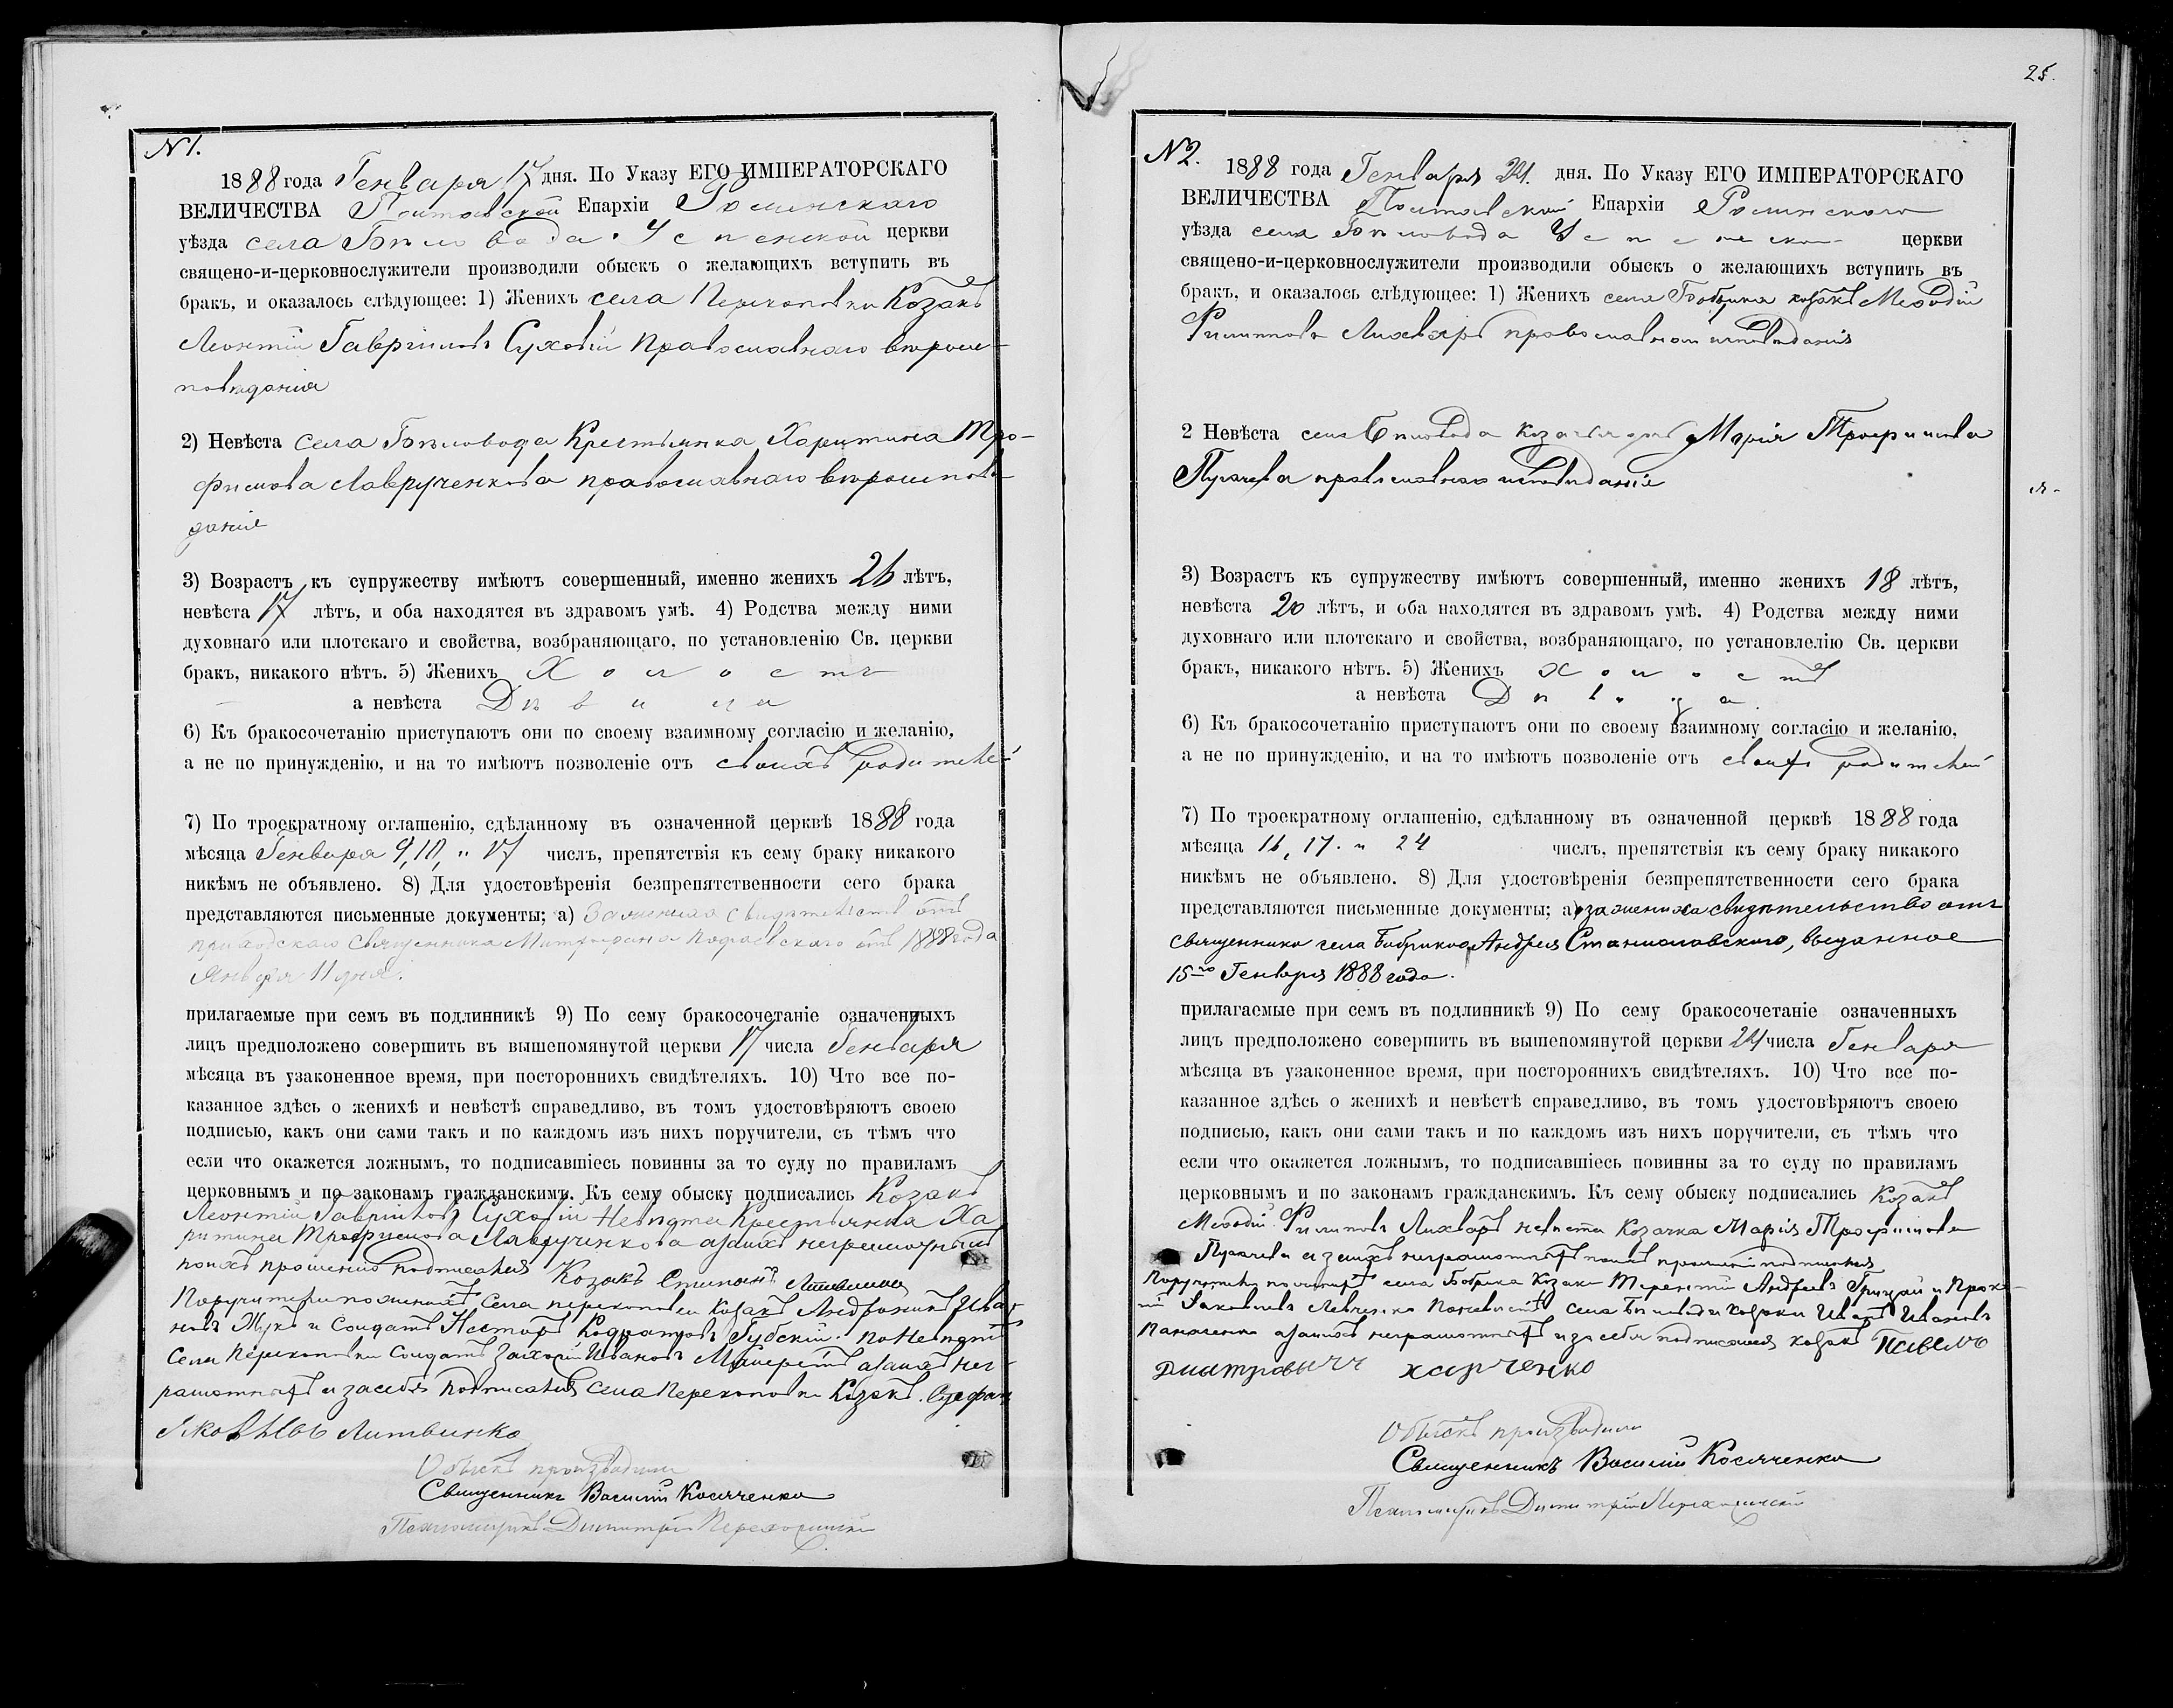 N 1.
1888 года Генваря 17 дня. По Указу ЕГО ИМПЕРАТОРСКАГО
ВЕЛИЧЕСТВА Полтавской Епархіи Роменскаго
уѣзда села Бѣловода. Успенской церкви
священо-и-церковнослужители производили обыскъ о желающихъ вступить въ
бракъ, и оказалось слѣдующее: 1) Женихъ села Перекоповки Козакъ
Леонтій Гавріиловъ Суховій Православнаго вѣроис-
повѣданія
2) Невѣста села Бѣловода Крестьянка Харитина Тро-
фимова Лаврученкова православнаго вѣроисповѣ-
данія
3) Возрастъ къ супружеству имѣютъ совершенный, именно женихъ 26 лѣтъ,
невѣста 17 лѣтъ, и оба находятся въ здравомъ умѣ. 4) Родства между ними
духовнаго или плотскаго и свойства, возбраняющаго, по установленію Св. церкви
бракъ, никакого нѣтъ. 5) Женихъ Холостъ
а невѣста Дѣвица
6) Къ бракосочетанію приступаютъ они по своему взаимному согласію и желанію,
а не по принужденію, и на то имѣютъ позволеніе отъ своихъ родителей
7) По троекратному оглашенію, сдѣланному въ означенной церквѣ 1888 года
мѣсяца Генваря 9, 10, и 17 числъ, препятствія къ сему браку никакого
никѣмъ не объявлено. 8) Для удостовѣренія безпрепятственности сего брака
представляются письменные документы; а) За жениха свидѣтельство отъ
приходскаго священника Митрофана отъ 1888 года
Января 11 дня.
прилагаемые при семъ въ подлинникѣ 9) По сему бракосочетаніе означенныхъ
лицъ предположено совершить въ вышепомянутой церкви 17 числа Генваря
мѣсяца въ узаконенное время, при постороннихъ свидѣтеляхъ. 10) Что все по-
казанное здѣсь о женихѣ и невѣстѣ справедливо, въ томъ удостовѣряютъ своею
подписью, какъ они сами такъ и по каждомъ изъ нихъ поручители, съ тѣмъ что
если что окажется ложнымъ, то подписавшіесь повинны за то суду по правиламъ
церковнымъ и по законамъ гражданскимъ. Къ сему обыску подписались Козакъ
Леонтій Гавріиловъ Суховій Невѣста Крестьянка Ха
ритина Трофимова Лаврученкова а за нихъ неграмотныхъ
по ихъ прошенію подписался Козакъ Степанъ
Поручители по женихѣ села Перекоповки Козакъ Андроникъ Ива-
новъ Жукъ и Солдатъ Несторъ Кодратовъ Губскій. по Невѣстѣ
Села Перекоповки Солдатъ Ивановъ а за нихъ нег-
рамотныхъ и за себя подписался села Перекоповки Козакъ Стефан
Яковлевъ Литвинко
Обыскъ производили
Священникъ Василій Косяченко
Псаломщикъ Димитрій
25.
N 2.
1888 года Генваря 24. дня. По Указу ЕГО ИМПЕРАТОРСКАГО
ВЕЛИЧЕСТВА Полтавской Епархіи Роменскаго
уѣзда села Бѣловода Успенской церкви
священо-и-церковнослужители производили обыскъ о желающихъ вступить въ
бракъ, и оказалось слѣдующее: 1) Женихъ села Бобрика козакъ Меѳодій
Филиповъ Лихваръ православнаго исповѣданія
2 Невѣста села Бѣловода Марія Трофимова
Пугачева православнаго исповѣданія
3) Возрастъ къ супружеству имѣютъ совершенный, именно женихъ 18 лѣтъ,
невѣста 20 лѣтъ, и оба находятся въ здравомъ умѣ. 4) Родства между ними
духовнаго или плотскаго и свойства, возбраняющаго, по установлелію Св. церкви
бракъ, никакого нѣтъ. 5) Женихъ Холостъ
а невѣста Дѣвица
6) Къ бракосочетанію приступаютъ они по своему взаимному согласію и желанію,
а не по принужденію, и на то имѣютъ позволеніе отъ своихъ родителей
7) По троекратному оглашенію, сдѣланному въ означенной церквѣ 1888 года
мѣсяца 16, 17. и 24 числъ, препятствія къ сему браку никакого
никѣмъ не объявлено. 8) Для удостовѣренія безпрепятственности сего брака
представляются письменные документы; а) за жениха свидѣтельство отъ
священника села Бобрика Андрея Станиславскаго, выданное
15го Генваря 1888 года.
прилагаемые при семъ въ подлинникѣ 9) По сему бракосочетаніе означенныхъ
лицъ предположено совершить въ вышепомянутой церкви 24 числа Генваря
мѣсяца въ узаконенное время, при постороннихъ свидѣтеляхъ. 10) Что все по-
казанное здѣсь о женихѣ и невѣстѣ справедливо, въ томъ удостовѣряютъ своею
подписью, какъ они сами такъ и по каждомъ изъ нихъ поручители, съ тѣмъ что
если что окажется ложнымъ, то подписавшіесь повинны за то суду по правиламъ
церковнымъ и по законамъ гражданскимъ. Къ сему обыску подписались Козакъ
Меѳодій Филиповъ Лихваръ невѣста козачка Марія Трофимова
Пугачева а за нихъ неграмотныхъ по ихъ прошенію подписался
Поручители по женихѣ села Бобрика Козаки Терентій Андреевъ Грицай и Проко-
пій Яковлевъ Левченко по невѣстѣ села Бѣловода козаки Иванъ Ивановъ
Панченко а за нихъ неграмотныхъ и за себя подписался козакъ Павелъ
Дмитровичъ Харченко
Обыскъ производили
Священникъ Василій Косяченко
Псаломщикъ Димитрій